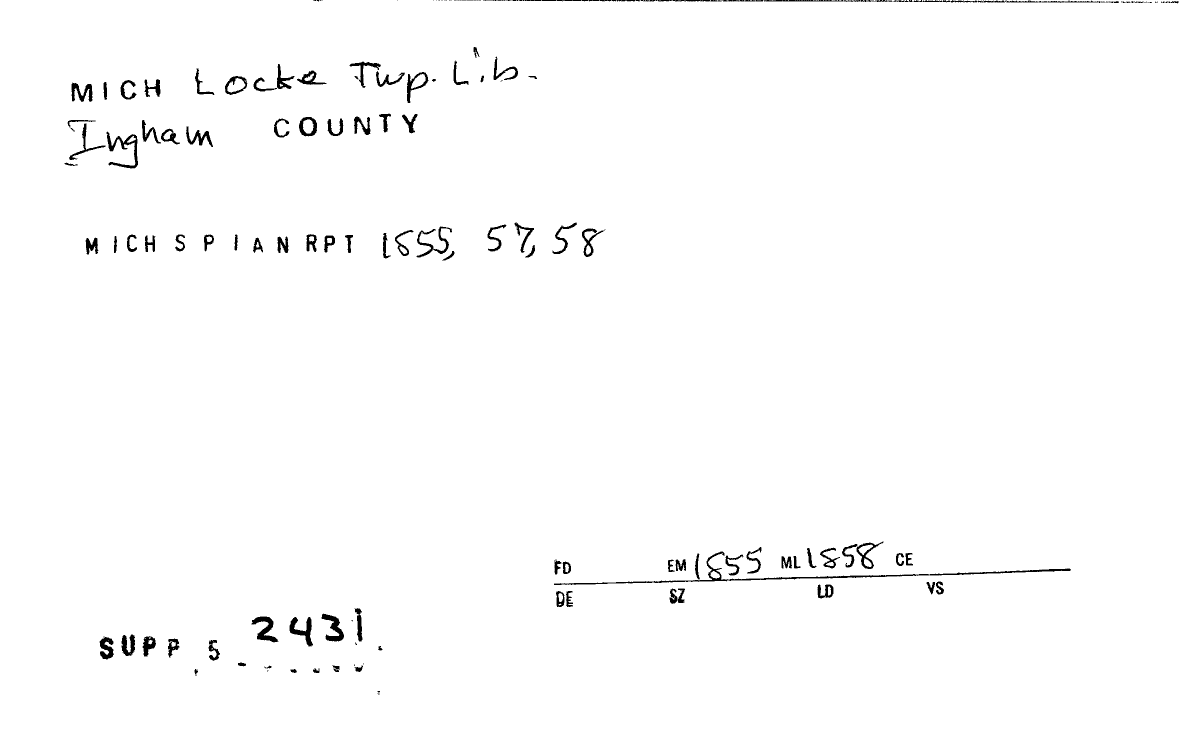 MICH Locke Twp. Lib.
Ingham COUNTY
MICH S P I AN RPT 1855, 57, 58
FD EM 1855 ML 1858 CE
DE SZ LD VS
SUPP 5 2431